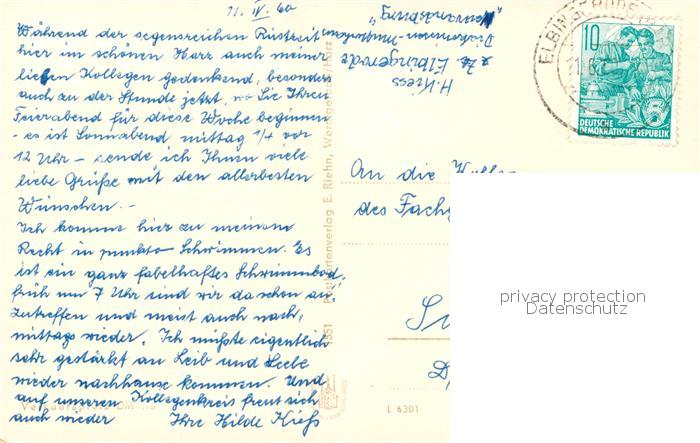 11. IV. 60
Während der segensreichen Rüstzeit
hier im schönen Harz auch meiner
lieben Kollegen gedenkend, besonders
auch zu der Stunde jetzt, wo Sie Ihren
Feierabend für diese Woche beginnen
- es ist Sonnabend mittag 1/4 vor
12 Uhr - sende ich Ihnen viele
liebe Grüße mit den allerbesten
Wünschen. -
Ich komme hier zu meinem
Recht in punkto Schwimmen. Es
ist ein ganz fabelhaftes Schwimmbad,
früh um 7 Uhr sind wir da schon an-
zutreffen und meist auch nach,
mittags wieder. Ich müßte eigentlich
sehr gestärkt an Leib und Seele
wieder nachhause kommen. Und
auf unseren Kollegenkreis freut sich
auch wieder Ihre Hilde Kieß
H. Kiess
z. Zt. Elbingerode
Diakonissen-Mutterhaus
"Neuvandsburg"
An die
des Fach
L 6301
E. Riehn, Wernigerode/Harz
10
DEUTSCHE
DEMOKRATISCHE REPUBLIK
privacy protection
Datenschutz